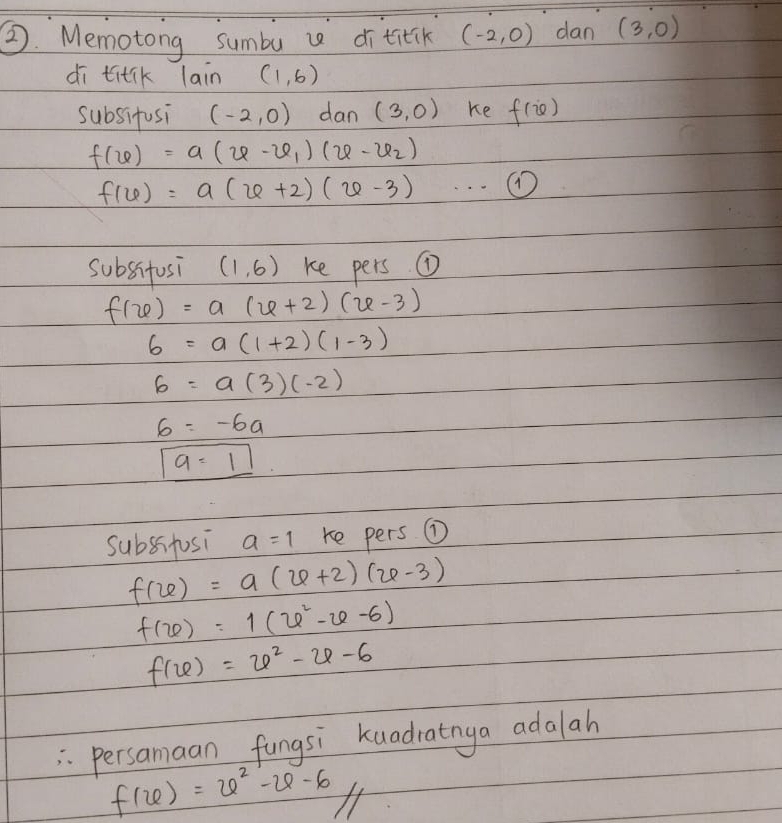 ② Memotong sumbu x di titik (-2,0) dan (3,0)
di titik lain (1,6)
Subsitusi (-2,0) dan (3,0) ke f(x)
f(x) = a (x - x₁) (x - x₂)
f(x) = a (x +2) (x -3) ... ①
Subsitusi (1,6) ke pers ①
f(x) = a (x+2) (x-3)
6 = a (1+2) (1-3)
6 = a (3) (-2)
6 = -6a
a = 1
Subsitusi a = 1 ke pers ①
f(x) = a (x+2) (x-3)
f(x) = 1 (x² - x - 6)
f(x) = x² - x - 6
∴ persamaan fungsi kuadratnya adalah
f(x) = x² - x - 6 //